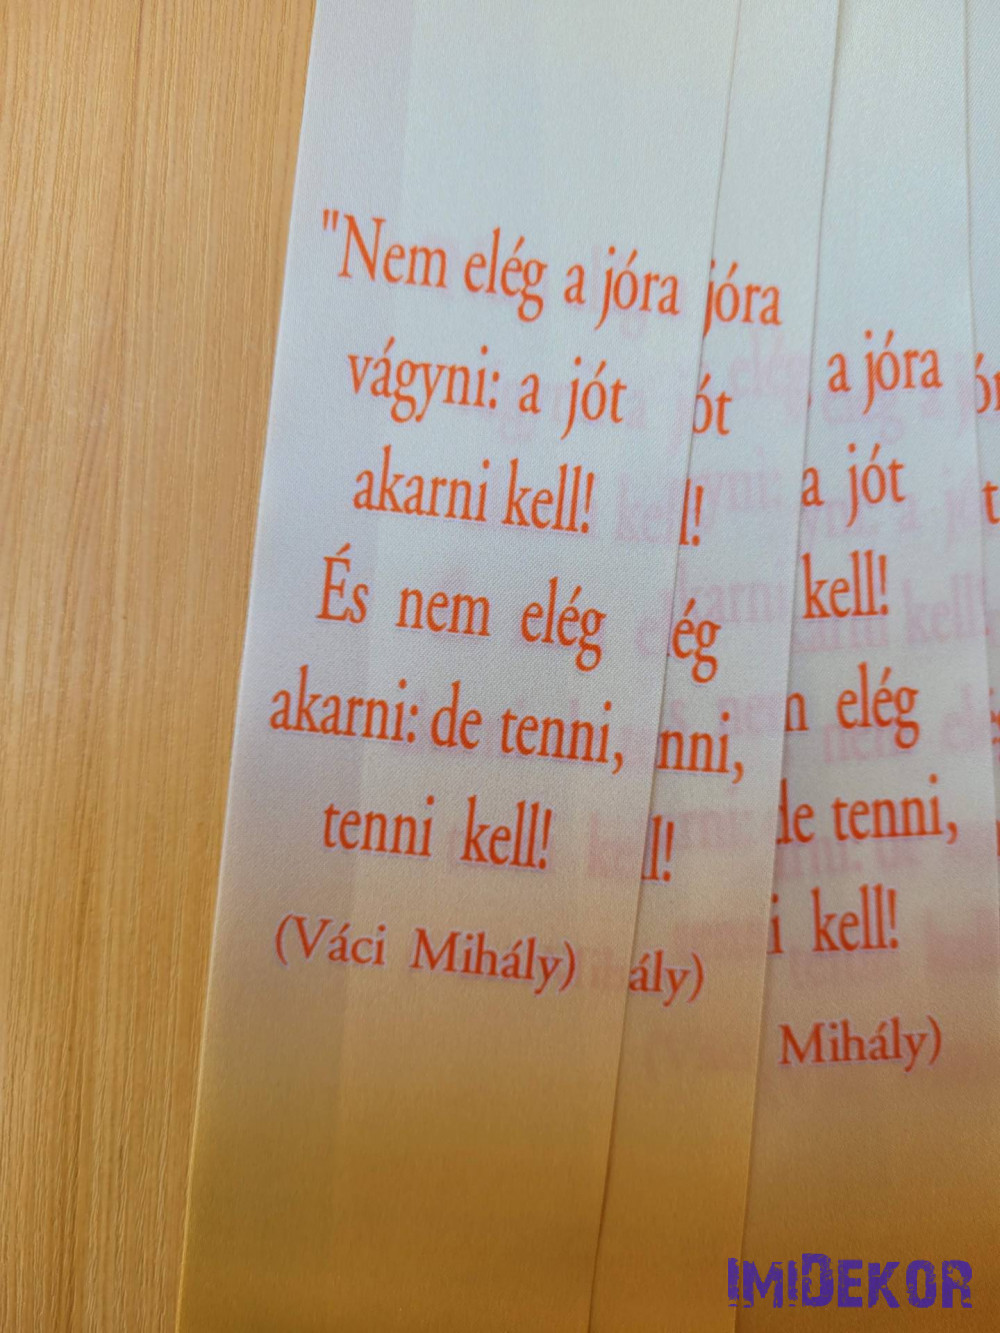 "Nem elég a jóra
vágyni: a jót
akarni kell!
És nem elég
akarni: de tenni,
tenni kell!
(Váci Mihály)
jóra
ót
l!
ég
nni,
l!
ály)
a jóra
a jót
kell!
elég
de tenni,
kell!
Mihály)
IMIDEKOR